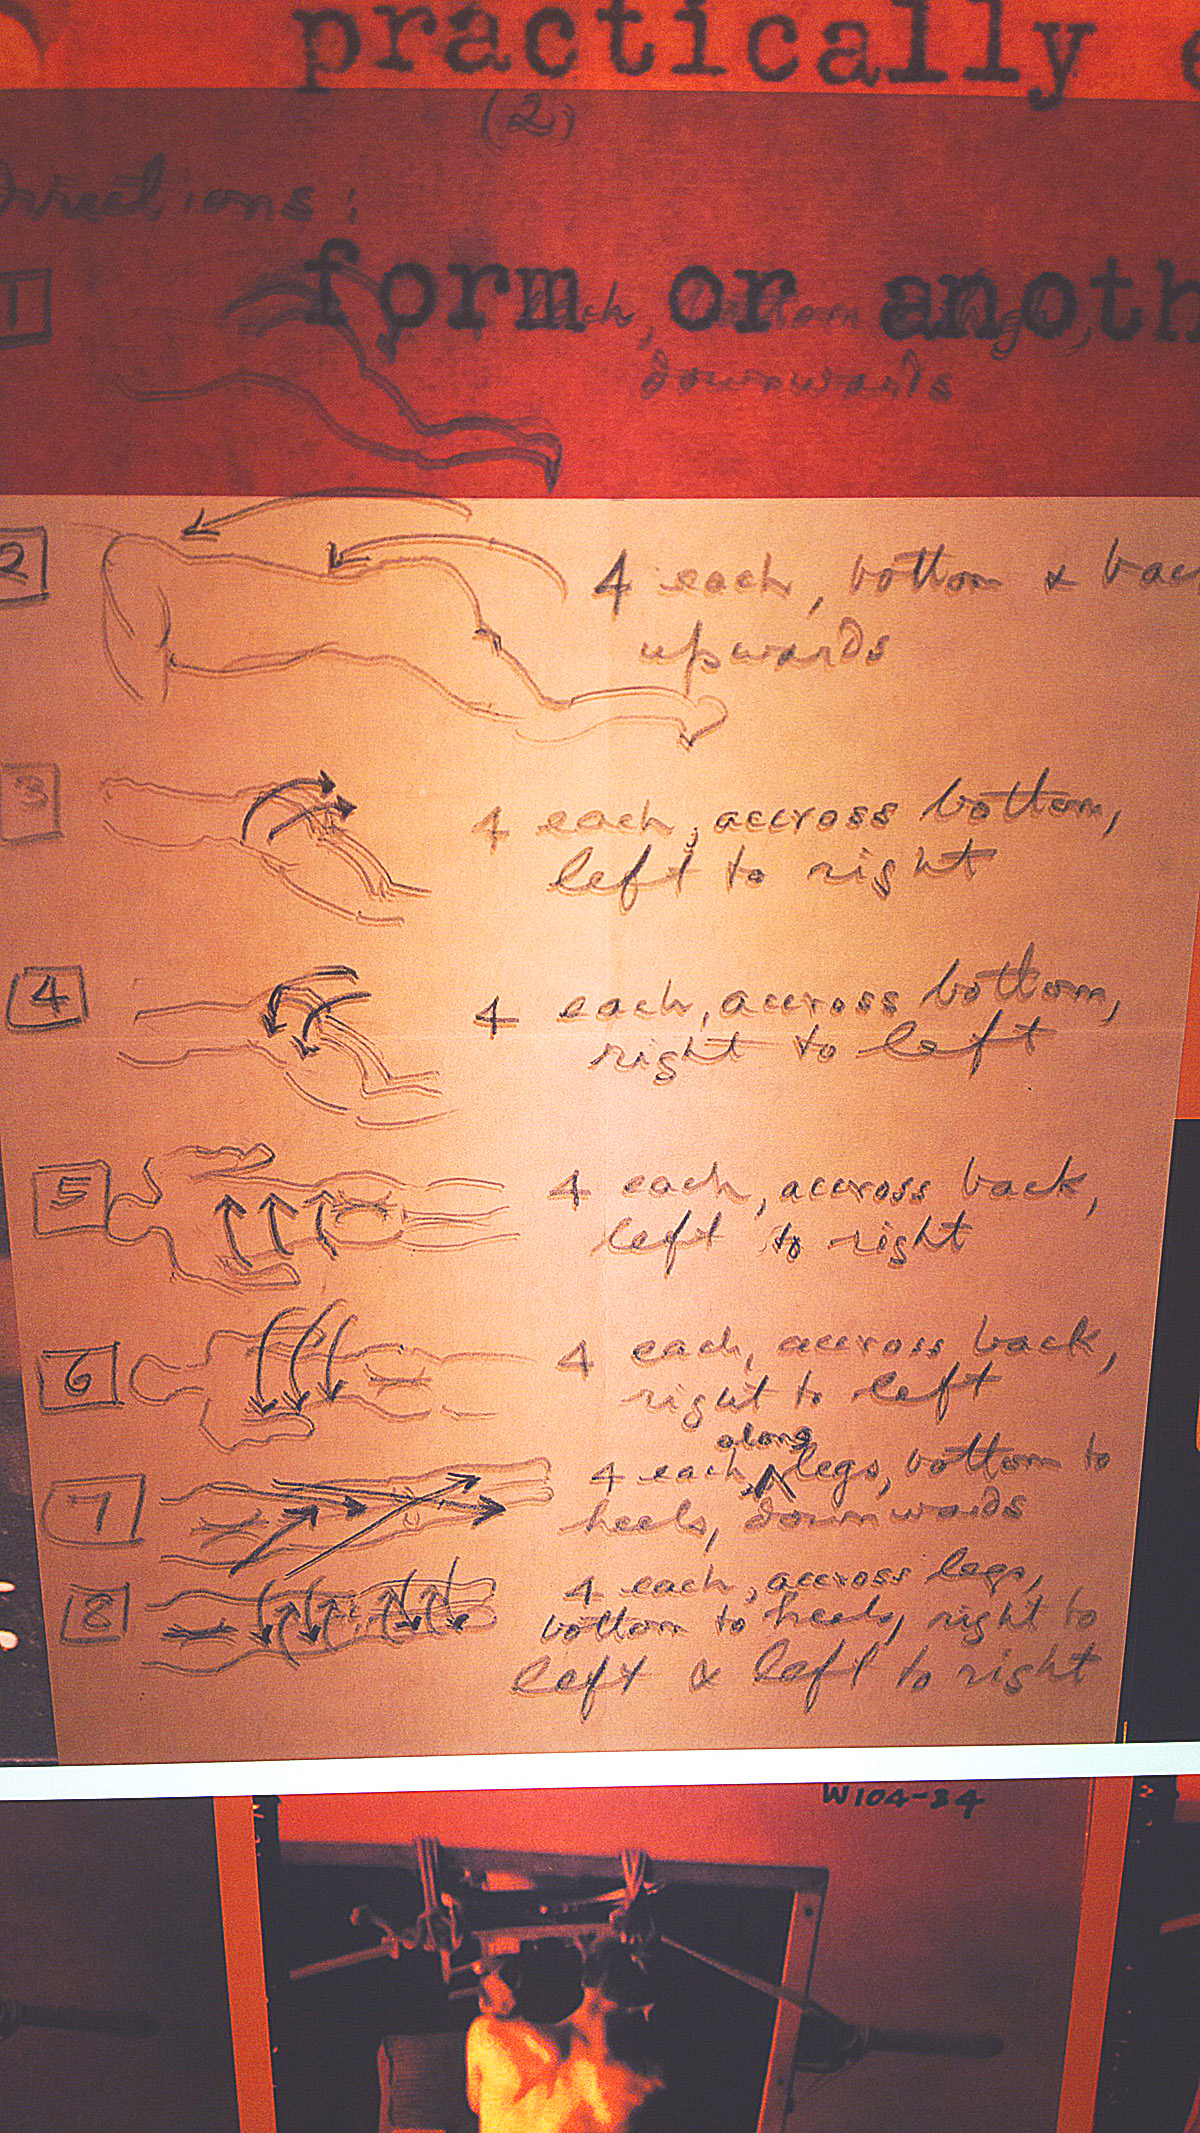 practically
(2)
Directions:
form or anoth
1
each, bottom & thighs,
downwards
2
4 each, bottom & bac
upwards
3
4 each, accross bottom,
left to right
4
4 each, accross bottom,
right to left
5
4 each, accross back,
left to right
6
4 each, accross back,
right to left
7
along
4 each, legs, bottom to
heels, downwards
8
4 each, accross legs,
bottom to heels, right to
left & left to right
W104-34